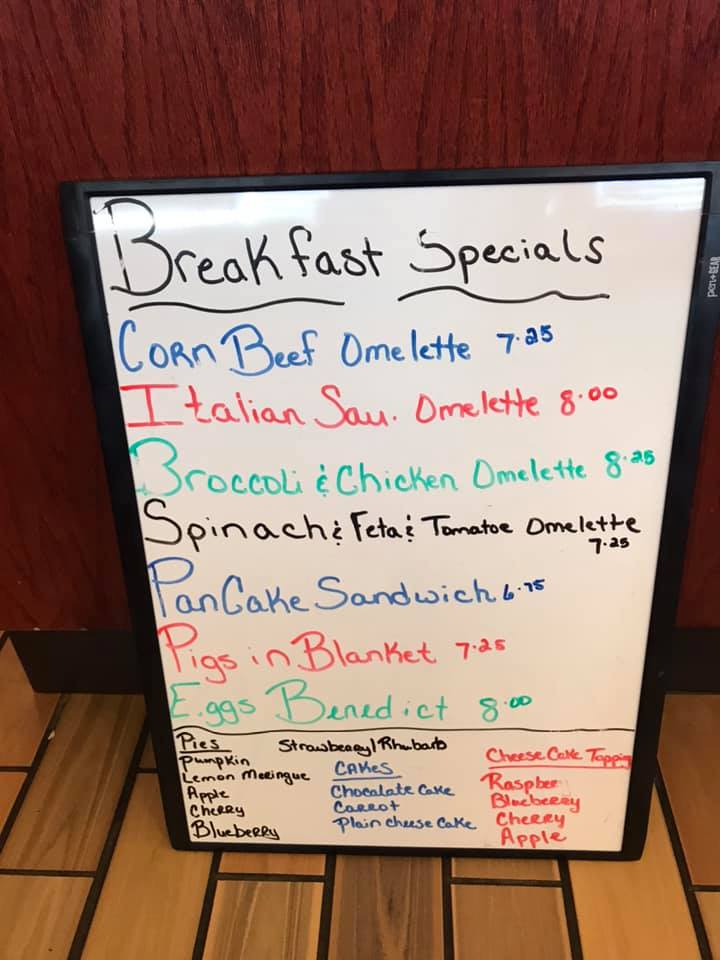 Breakfast Specials
Corn Beef Omelette 7.25
Italian Sau. Omelette 8.00
Broccoli & Chicken Omelette 8.25
Spinach & Feta & Tomatoe Omelette
7.25
PanCake Sandwich 6.75
Pigs in Blanket 7.25
Eggs Benedict 8.00
Pies
Strawberry/Rhubarb
Pumpkin
Lemon Meringue
Apple
Cherry
Blueberry
CAKes
Chocalate Cake
Carrot
Plain cheese Cake
Cheese Cake Topping
Raspber
Blueberry
Cherry
Apple